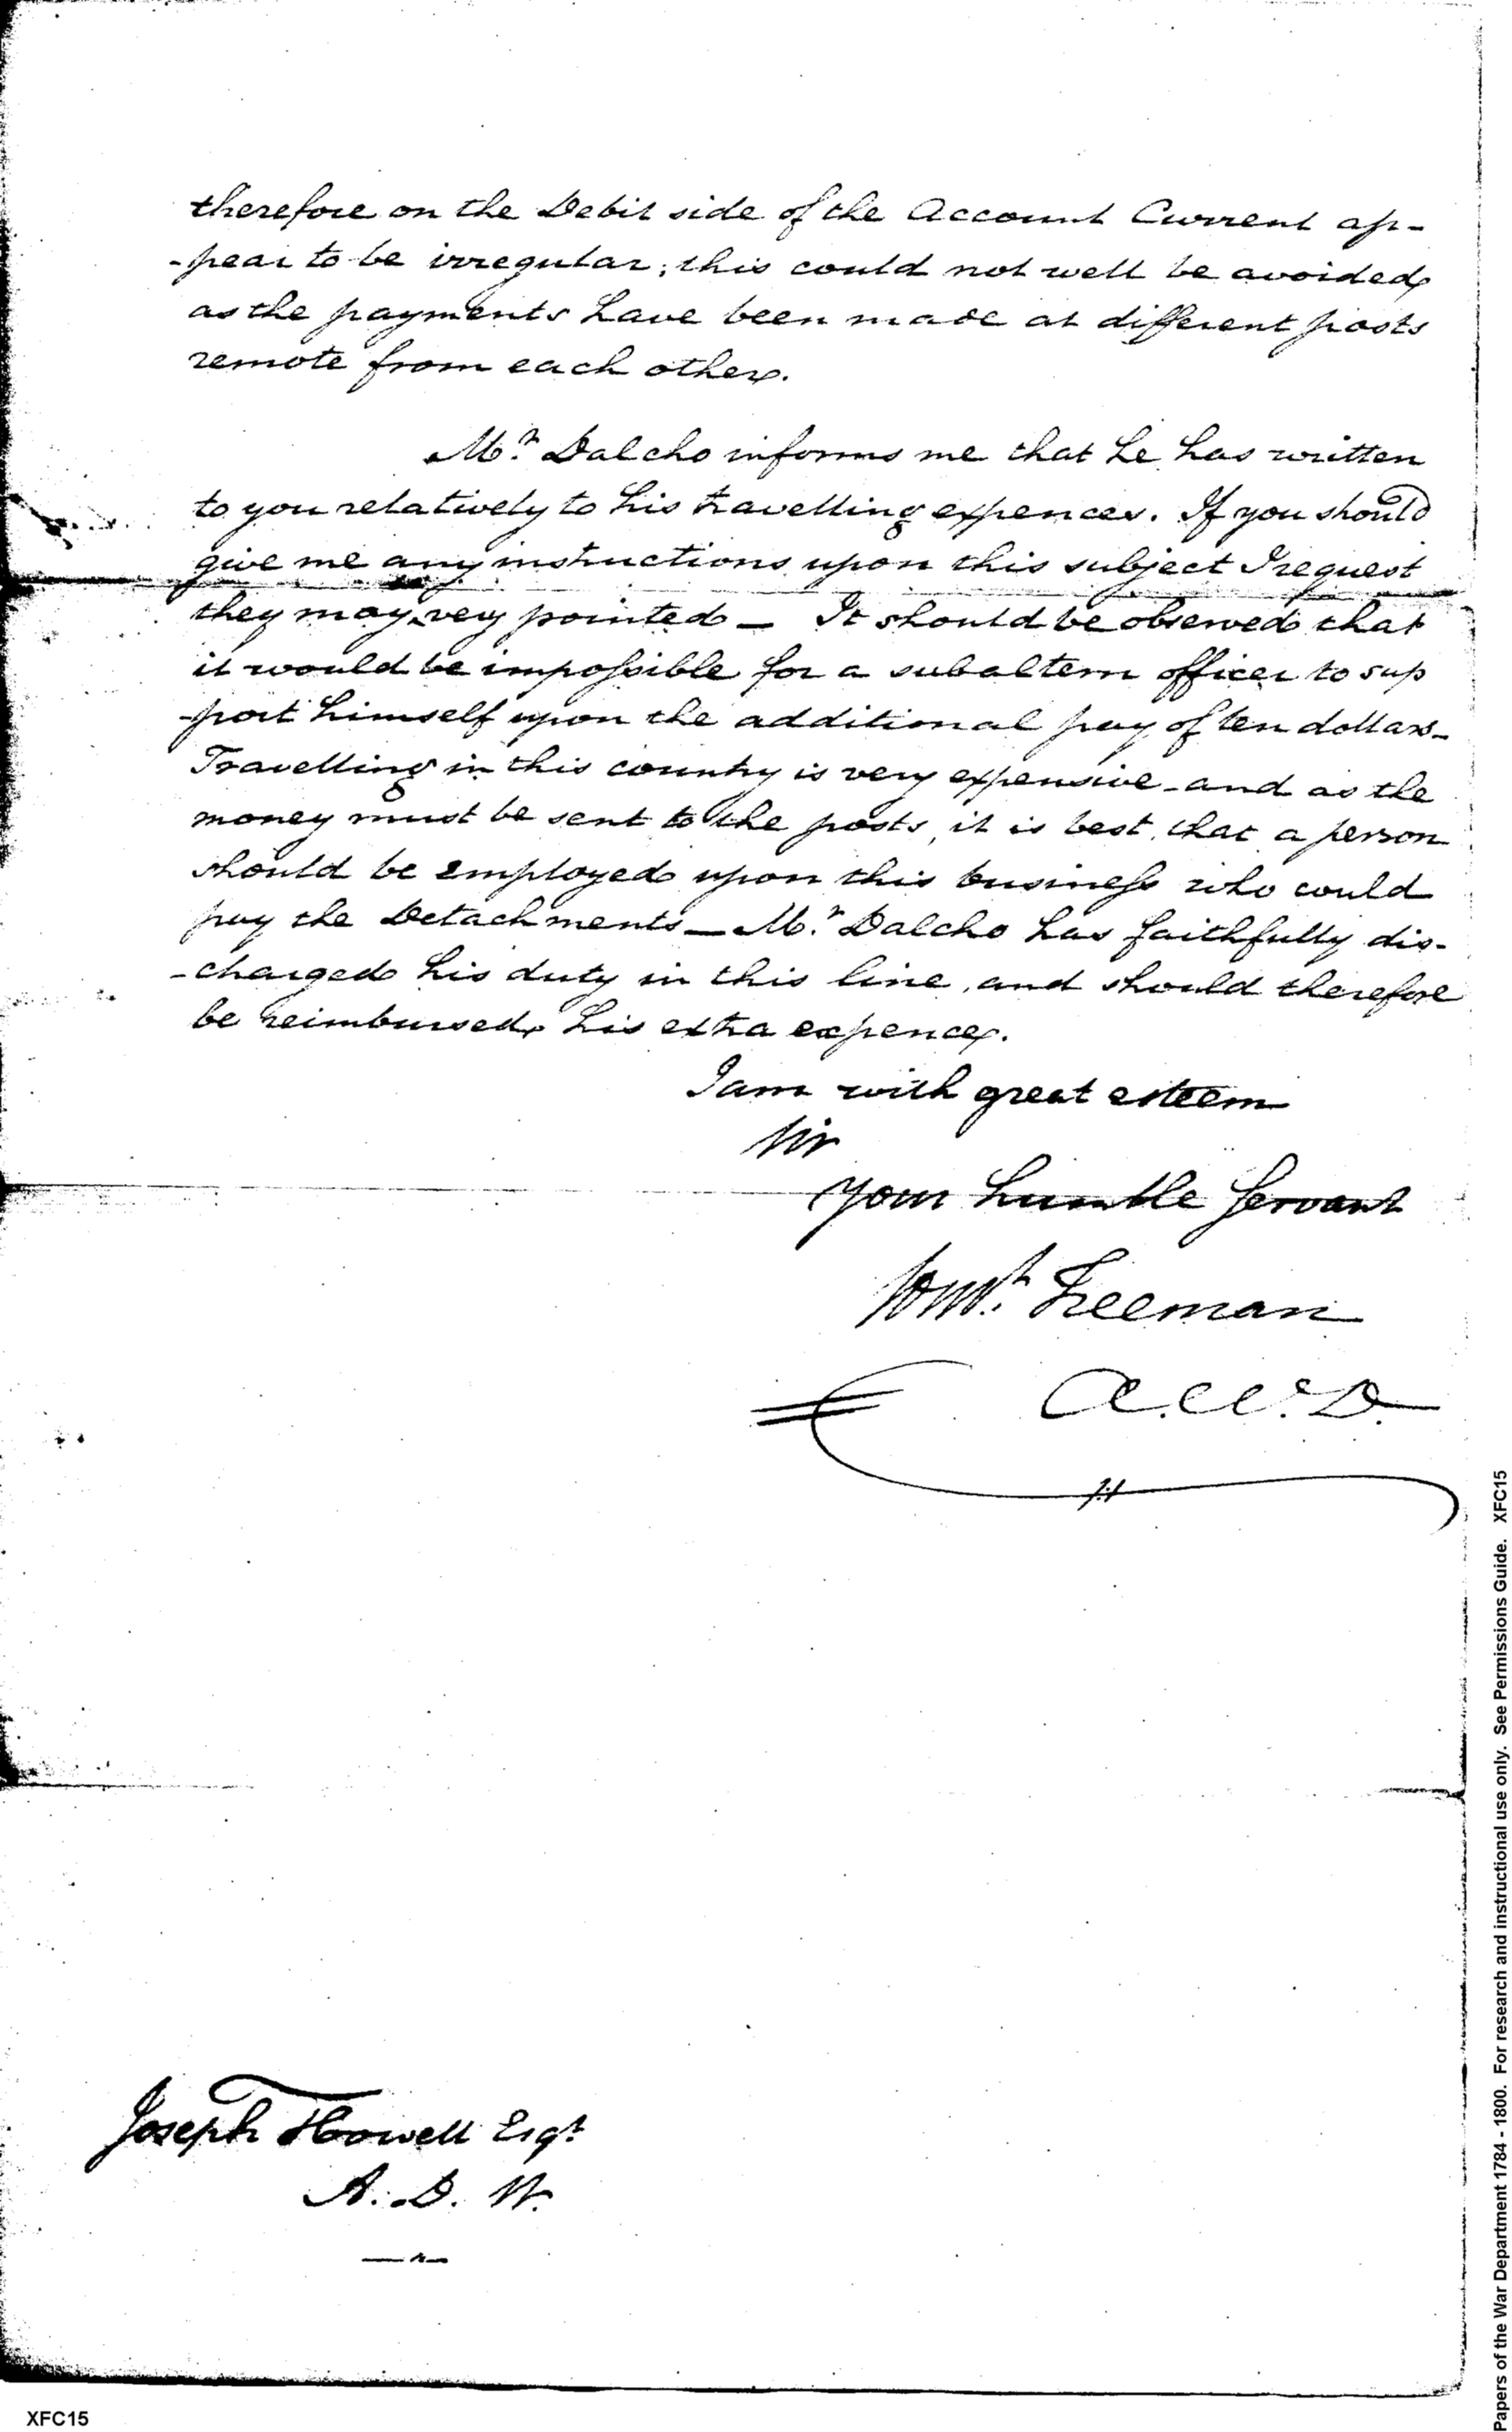 therefore on the Debit side of the Account Current ap-
-pear to be irregular; this could not well be avoided,
as the payments have been made at different posts
remote from each other.
Mr. Dalcho informs me that he has written
to you relatively to his travelling expences. If you should
give me any instructions upon this subject I request
they may very pointed — It should be observed that
it would be impossible for a subaltern officer to sup
-port himself upon the additional pay of ten dollars—
Travelling in this country is very expensive — and as the
money must be sent to the posts, it is best, that a person
should be employed upon this business who could
pay the Detachments — Mr. Dalcho has faithfully dis-
-charged his duty in this line, and should therefore
be reimbursed, his extra expences.
I am with great esteem
Sir
Your humble Servant
Freeman
A.W.D.
Joseph Howell Esqr.
A. D. W.
XFC15
Papers of the War Department 1784 - 1800. For research and instructional use only. See Permissions Guide. XFC15